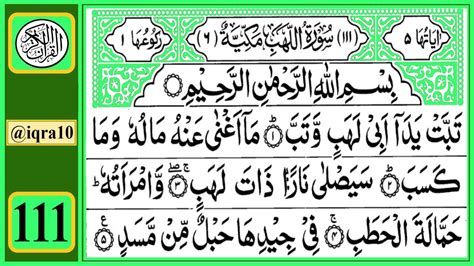 اٰيَاتُهَا ٥
(١١١) سُوْرَةُ اللَّهَبِ مَكِّيَّةٌ (٦)
رُكُوْعُهَا ١
بِسْمِ اللّٰهِ الرَّحْمٰنِ الرَّحِيْمِ
تَبَّتْ يَدَاۤ اَبِيْ لَهَبٍ وَّتَبَّ ۝١ مَاۤ اَغْنٰى عَنْهُ مَالُهٗ وَمَا
كَسَبَ ۝٢ سَيَصْلٰى نَارًا ذَاتَ لَهَبٍ ۝٣ وَّامْرَاَتُهٗ ؕ
حَمَّالَةَ الْحَطَبِ ۝٤ فِيْ جِيْدِهَا حَبْلٌ مِّنْ مَّسَدٍ ۝٥
القرآن الكريم
@iqra10
111